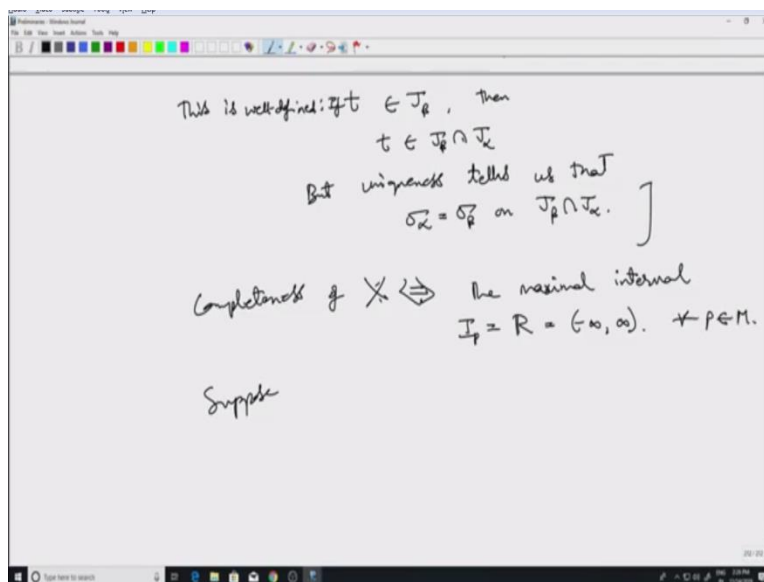 Preliminaries - Windows Journal
File Edit View Insert Actions Tools Help
This is well-defined: If t ∈ J_β, then
t ∈ J_β ∩ J_α
But uniqueness tells us that
σ_α = σ_β on J_β ∩ J_α. ]
Completeness of X ⇔ The maximal interval
I_p = R = (-∞, ∞). ∀ p ∈ M.
Suppose
20/20
Type here to search